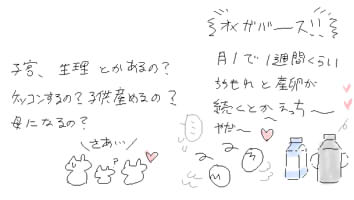 オメガバース!!
子宮、生理とかあるの?
ケッコンするの?子供産めるの?
母になるの?
さあ…
月1で1週間くらい
産卵が
続くとかえっち〜
やだ〜